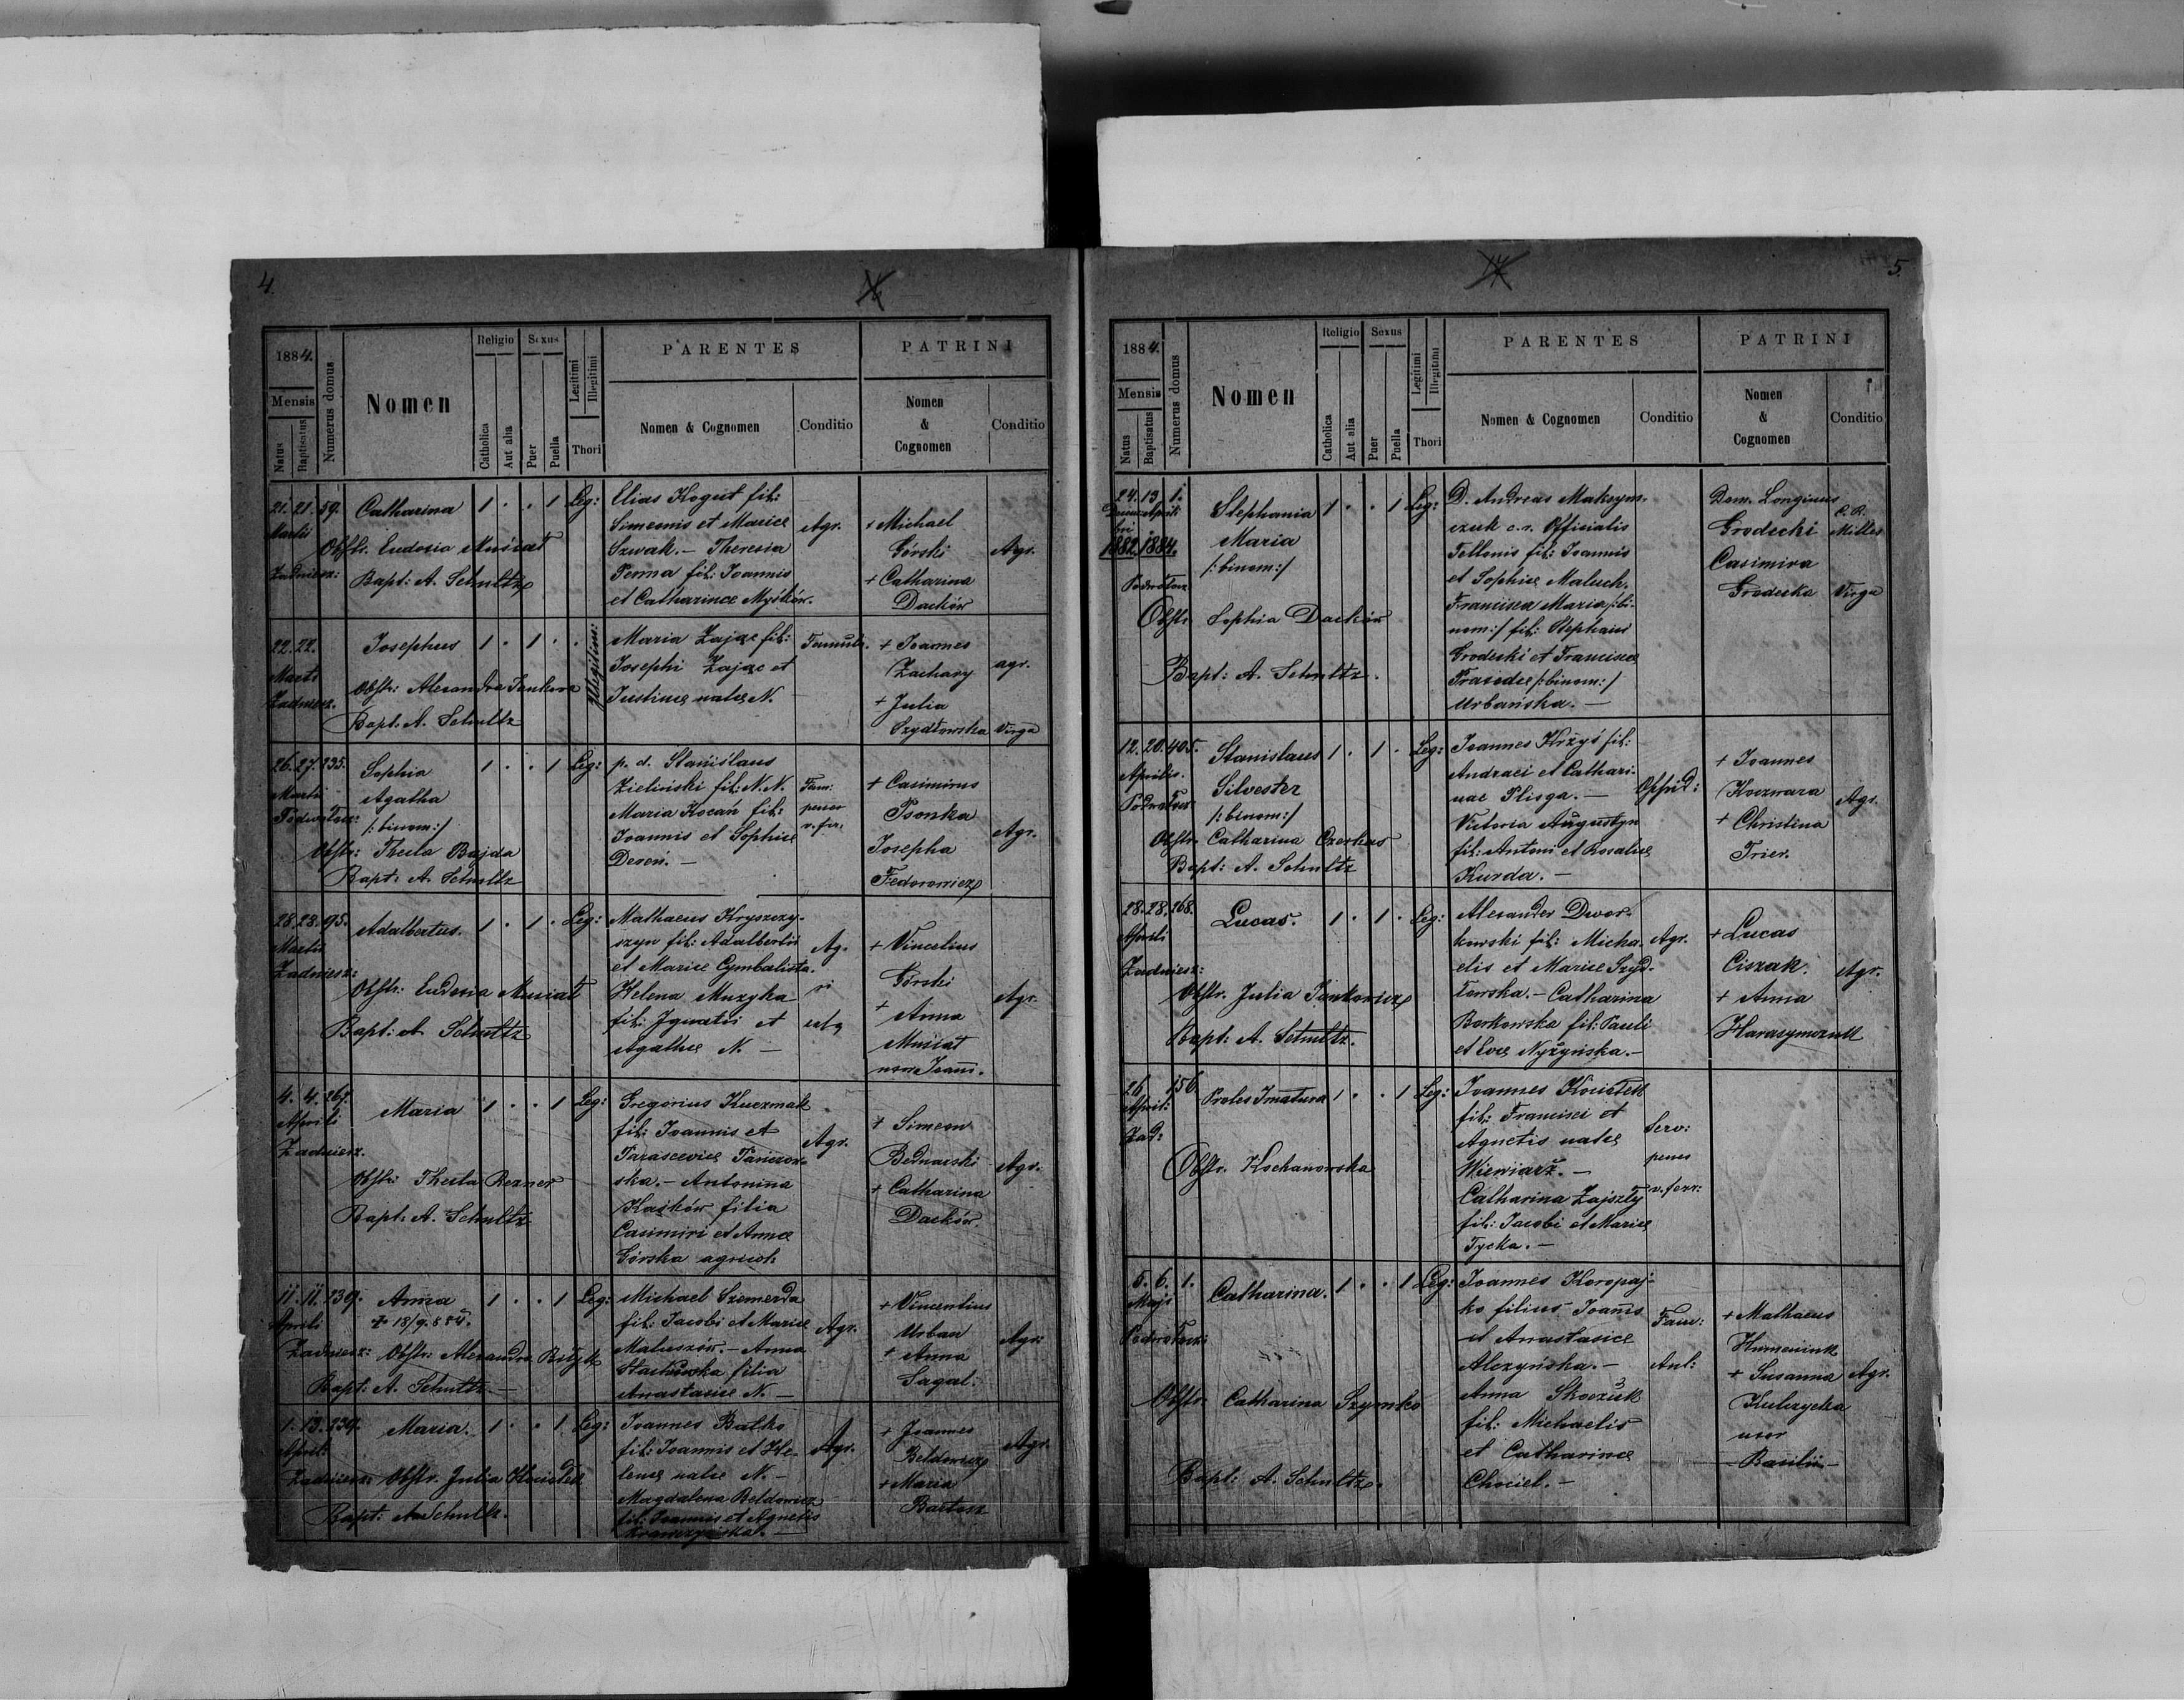 4.
1884.
Mensis
Natus
Baptisatus
Numerus domus
Nomen
Religio
Catholica
Aut alia
Sexus
Puer
Puella
Legitimi
Illegitimi
Thori
PARENTES
Nomen & Cognomen
Conditio
PATRINI
Nomen
&
Cognomen
Conditio
21. 21. 59. Catharina 1 . . 1 Leg:
Martii
Zadniesz:
Obstr. Eudosia Musiat
Bapt: A. Schultz
Elias Kogut fil:
Simeonis et Mariae
Szwak. — Theresia
Penna fil: Joannis
et Catharinae Myśków.
Agr.
+ Michael
Górski
+ Catharina
Daćków
Agr.
22. 22. Josephus 1 . 1 . Illegitim:
Marti
Zadniesz.
Obstr: Alexandra Jankow
Bapt. A. Schultz
Maria Zając fil:
Josephi Zając et
Justinae natae N. —
Famul:
+ Joannes
Zachary
+ Julia
Szydłowska
agr.
Virgo
26. 27. 235. Sophia 1 . . 1 Leg:
Martii
Podwołocz:
Agatha
/:binom:/
Obstr: Thecla Bajda
Bapt: A. Schultz
p. d. Stanislaus
Zieliński fil: N. N.
Maria Kocań fil:
Joannis et Sophiae
Dereń. —
Fam:
penes
v. fer.
+ Casimirus
Psonka
Josepha
Fedorowicz
Agr.
28. 28. 95. Adalbertus. 1 . 1 . Leg:
Martii
Zadniesz:
Obstr: Eudosia Musiat
Bapt: A Schultz
Mathaeus Kryszczy-
szyn fil: Adalberti
et Mariae Cymbalista.
Helena Muzyka
fil: Ignatii et
Agathae N. —
Ag.
+ Vincelius
Górski
+ Anna
Musiat
uxor Joani.
Agr.
4. 4. 267. Maria 1 . . 1 Leg:
Aprili
Zadniesz.
Obstr: Thecla Rezner
Bapt: A. Schultz
Gregorius Kuczmak
fil: Joannis et
Parasceviae Panczow-
ska. — Antonina
Kaśków filia
Casimiri et Annae
Górska agricol:
Agr.
+ Simeon
Bednarski
+ Catharina
Daćków.
Agr.
11. 11. 239. Anna 1 . . 1 Leg:
Aprili
18/9.884.
Zadniesz: Obstr: Alexandra Biłyk
Bapt: A. Schultz. —
Michael Szemerda
fil: Jacobi et Mariae
Matuszów. — Anna
Stachurska filia
Anastasiae N. —
Agr.
+ Vincentius
Urban
+ Anna
Sagal.
Agr:
1. 13. 239. Maria. 1 . . 1 Leg:
April:
Zadniesz: Obstr. Julia Kusiotek
Bapt: A. Schultz.
Joannes Batko
fil: Joannis et He-
lenae natae N. —
Magdalena Beldowicz
fil: Joannis et Agnetis
Krawczyńska. —
Agr.
+ Joannes
Beldowicz
+ Maria
Bartosz
Agr.
5.
1884.
Mensis
Natus
Baptisatus
Numerus domus
Nomen
Religio
Catholica
Aut alia
Sexus
Puer
Puella
Legitimi
Illegitimi
Thori
PARENTES
Nomen & Cognomen
Conditio
PATRINI
Nomen
&
Cognomen
Conditio
24. 13. 1. Stephania 1 . . 1 Leg:
Decem- Aprili
bri
1882. 1884.
Maria
/:binom:/
Podwołocz
Obstr. Sophia Daćków
Bapt: A. Schultz.
D. Andreas Maksym-
czuk c. r. Officialis
Tellonis fil: Joannis
et Sophiae Maluch.
Francisca Maria /:bi-
nom:/ fil: Stephani
Grodecki et Franciscae
Praxedae /:binom:/
Urbańska. —
Dom. Longinus
Grodecki
Casimira
Grodecka
C. R.
Milles
Virgo
12. 20. 405. Stanislaus 1 . 1 . Leg:
Aprilis.
Podwołocz
Silvester
/:binom:/
Obstr. Catharina Czerkas
Bapt: A. Schultz
Joannes Krzyś fil:
Andraei et Cathari-
nae Plisga. —
Victoria Augustyn
fil: Antoni et Rosaliae
Kurda. —
Oppid:
+ Joannes
Koczwara
+ Christina
Trier.
Agr.
28. 28. 268. Lucas. 1 . 1 . Leg:
Aprili
Zadniesz:
Obstr. Julia Jankowicz
Bapt: A. Schultz.
Alexander Dwor-
kowski fil: Micha-
elis et Mariae Szyd-
łowska. — Catharina
Borkowska fil: Pauli
et Evae Nyżyńska. —
Agr.
+ Lucas
Ciszak.
+ Anna
Harasymczuk
Agr.
26. 156. Proles Imatura 1 . . 1 Leg:
April:
Zad:
Obstr. Kochanowska
Joannes Kusiotek
fil: Francisci et
Agnetis natae
Wiewiarż. —
Catharina Zajszły
fil: Jacobi et Mariae
Tycka. —
Serv:
penes
v. ferr:
5. 6. 1. Catharina. 1 . . 1 Leg:
Maji
Podwołocz:
Obstr: Catharina Szymko
Bapt: A. Schultz.
Joannes Koropaj-
ko filius Joannis
et Anastasiae
Alczyńska. —
Anna Skoczuk
fil: Michaelis
et Catharinae
Chociel. —
Fam:
Aul:
+ Mathaeus
Humeniuk
+ Susanna
Kulczycka
uxor
— Basilii —
Agr.